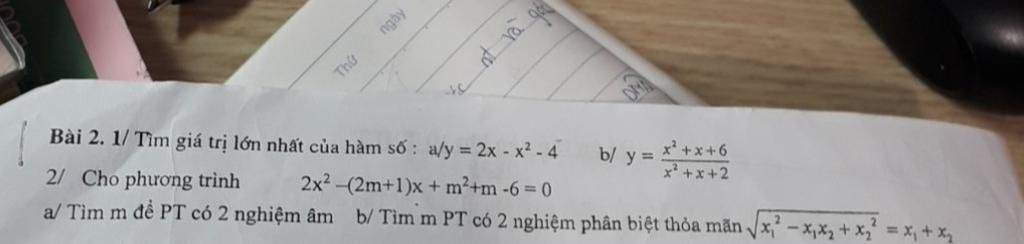 Thứ ngày
Bài 2. 1/ Tìm giá trị lớn nhất của hàm số : a/y = 2x - x² - 4 b/ y = (x² + x + 6)/(x² + x + 2)
2/ Cho phương trình 2x² –(2m+1)x + m²+m -6 = 0
a/ Tìm m để PT có 2 nghiệm âm b/ Tìm m PT có 2 nghiệm phân biệt thỏa mãn √(x₁² − x₁x₂ + x₂²) = x₁ + x₂